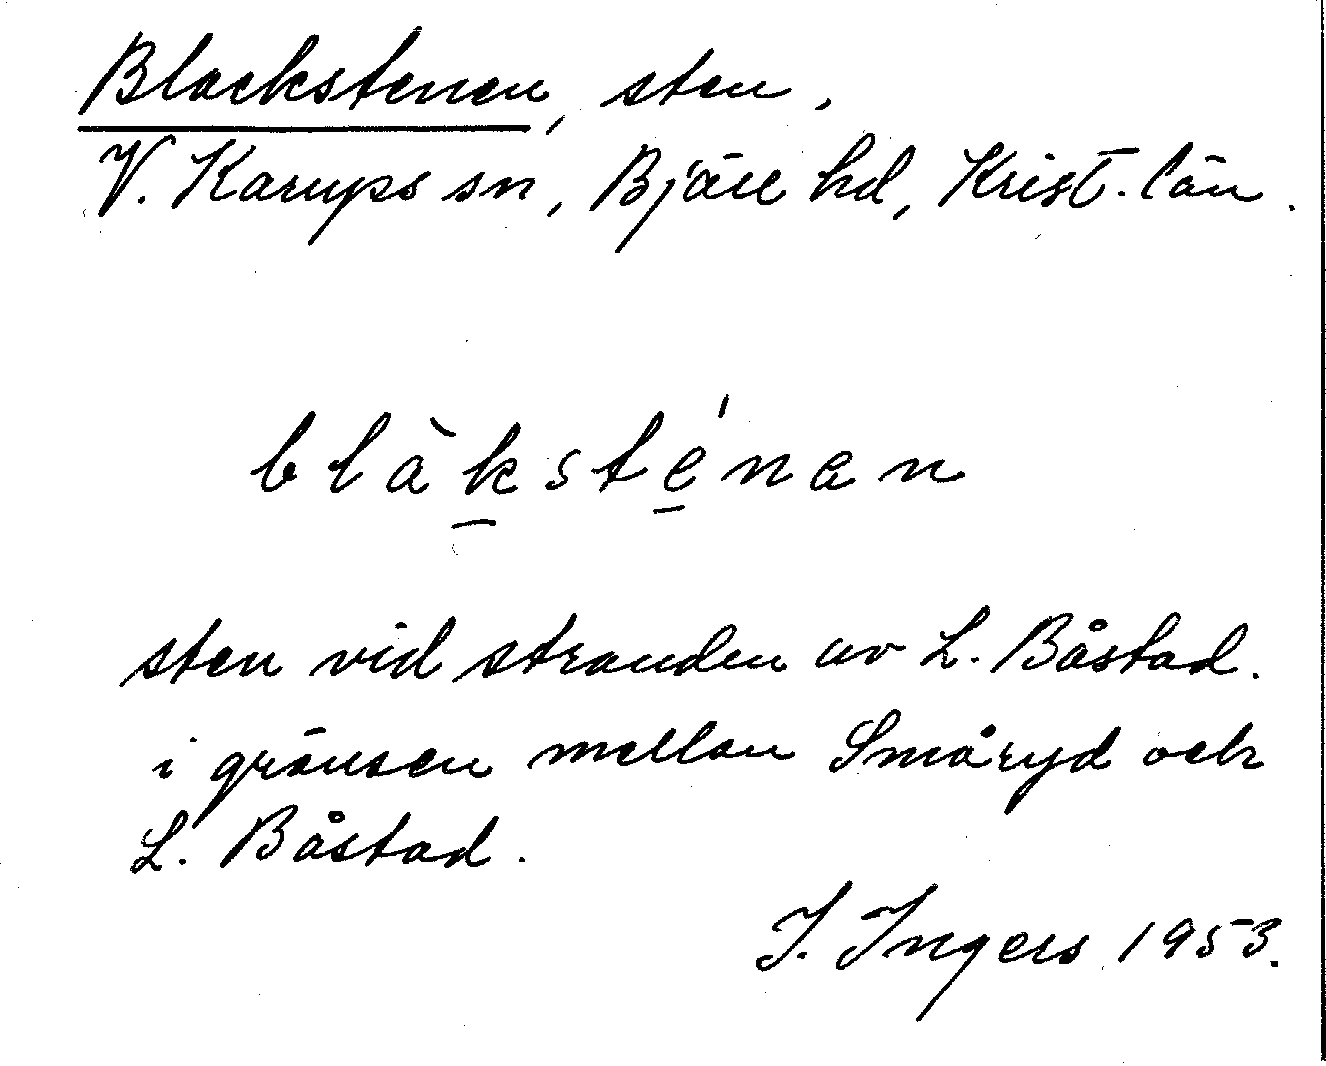 Blackstenen, sten.
V. Karups sn, Bjäre hd, Krist. län.
blàk̲sté̲nen
sten vid stranden av L. Båstad.
i gränsen mellan Småryd och
L. Båstad.
I. Ingers 1953.